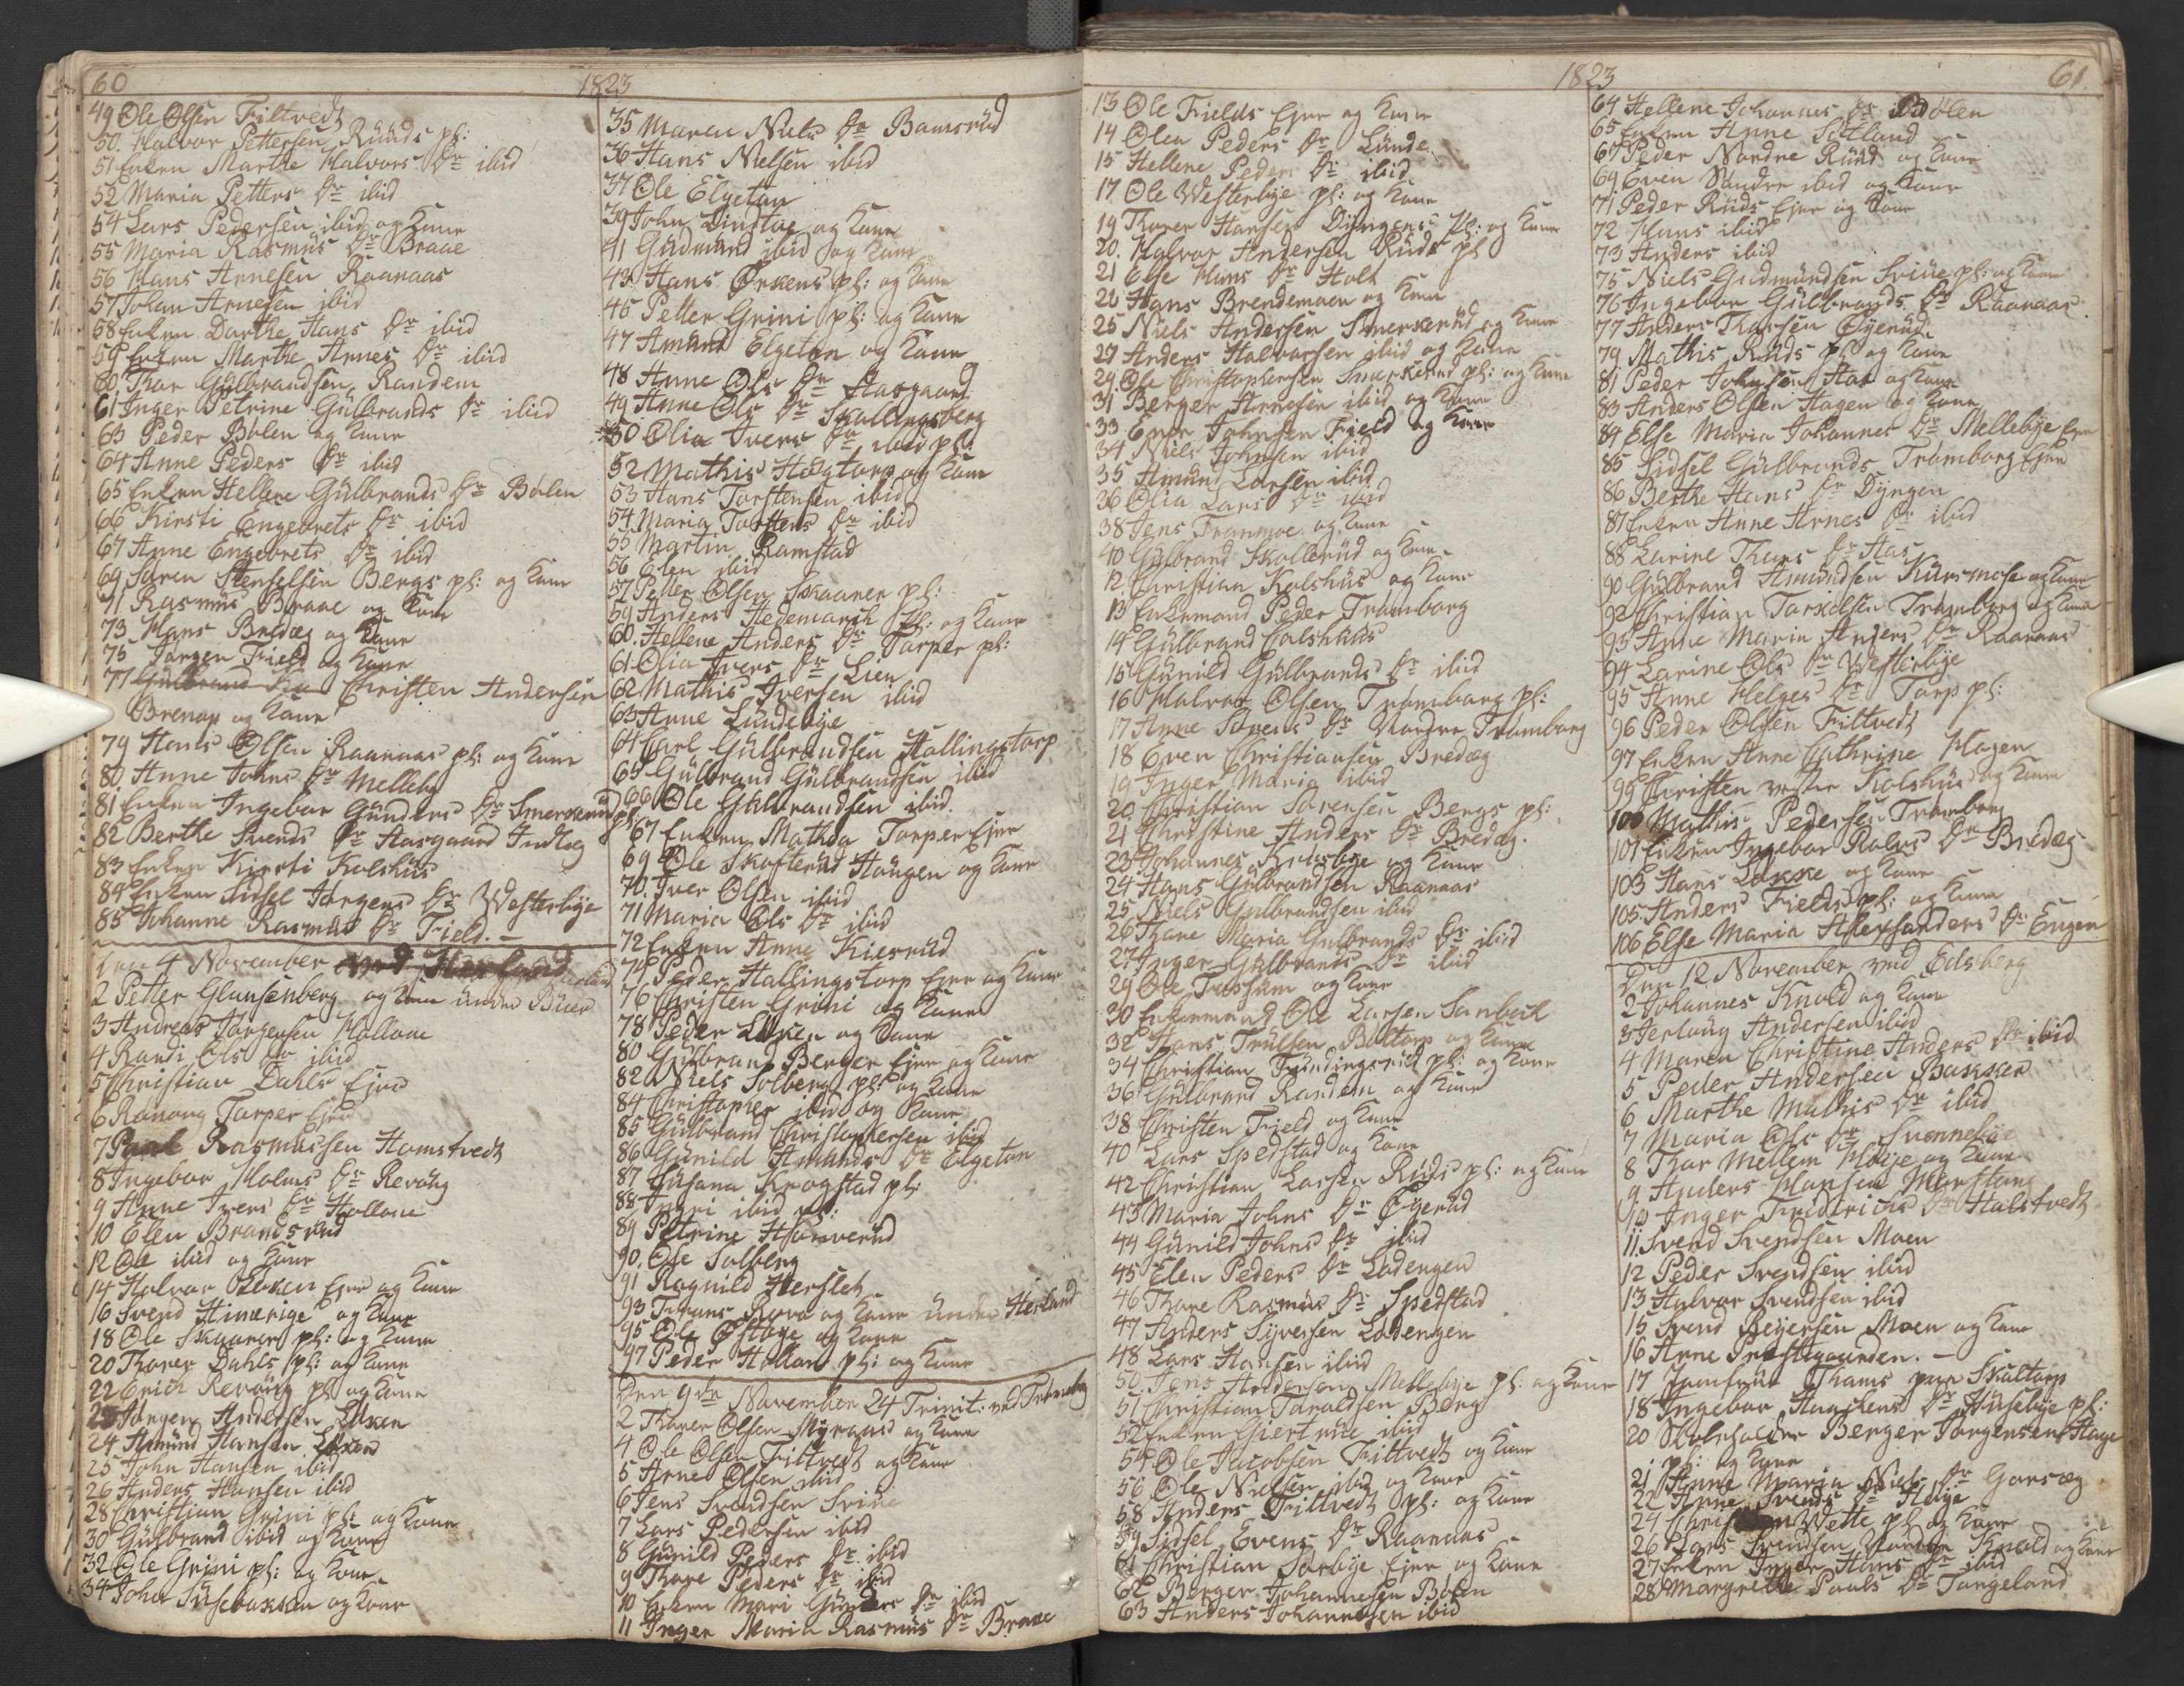 60
1823
49 Ole Olsen Filtvedt
50. Halvor Pettersen Ruuds pl:
51 Enken Marthe Halvors Dr ibid
52 Maria Petters Dr ibid
54 Lars Pedersen ibid og Kone
55 Maria Rasmus Dr Braae
56 Hans Arnesen Raanaas
57 Johan Arnesen ibid
58 Enken Dorthe Hans Dr ibid
59 Enken Marthe Arnes Dr ibid
60. Thor Gulbrandsen Randem
61 Inger Petrine Gulbrands Dr ibid
63 Peder Bolen og Kone
64 Anne Peders Dr ibid
65 Enken Hellene Gulbrands Dr Bolen
66 Kirsti Engebrets Dr ibid
67 Anne Engebrets Dr ibid
69 Soren Stenselsen Bergs pl: og Kone
71 Rasmus Braae og Kone
73 Hans Bredæg og Kone
75 Jorgen Field og Kone
77 Christen Andersen
Brenop og Kone
79 Hans Olsen Raanaas pl: og Kone
80. Anne Johns Dr Melleby
81 Enken Ingebor Gunders Dr Smerserud pl:
82 Berthe Svends Dr Aasgaard Indleg
83 Enken Kirsti Kolshus
84 Enken Sidsel Jorgens Dr Westerbye
85 Johanne Rasmus Dr Field. -
Den 4 November
2 Petter Glansenberg og Kone
3 Andreas Jorgensen Hollone
4 Randi Ols Dr ibid
5 Christian Dahls Ejer
6 Ronong Torper Ejer
7 Paul Rasmussen Homstvedt
8 Ingebor Holms Dr Revoug
9 Anne Ivers Dr Hollone
10 Elen Brandsrud
12 Ole ibid og Kone
14 Halvor Loken Ejer og Kone
16 Svend Himerige og Kone
18 Ole Skaarer pl: og Kone
20 Thorer Dahls pl: og Kone
22 Erich Revoug pl: og Kone
23 Jorgen Andersen Loken
24 Amund Hansen Loken
25 John Hansen ibid
26 Anders Hansen ibid
28 Christian Grini pl: og Kone
30 Gulbrand ibid og Kone
32 Ole Grini pl: og Kone
34 John Susebakken og Kone
35 Maren Niels Dr Bamsrud
36 Hans Nielsen ibid
37 Ole Elgeton
39 John Lindtoe og Kone
41 Gudmund ibid og Kone
43 Hans Ørkens pl: og Kone
45 Petter Grini pl: og Kone
47 Amund Elgeton og Kone
48 Anne Ols Dr Aasgaard
49 Anne Ols Dr Skallingsberg
50 Olia Ivers Dr ibid pl:
52 Mathis Hougtorp og Kone
53 Hans Torstensen ibid
54 Maria Torstens Dr ibid
55 Martin Ramstad
56 Elen ibid
57 Petter Olsen Skaarer pl:
59 Anders Hedemarch pl: og Kone
60. Hellene Anders Dr Torper pl:
61. Olia Ivers Dr Lien
62 Mathis Iversen ibid
63 Anne Lundebye
64 Carl Gulbrandsen Hallingstorp
65 Gulbrand Gulbrandsen ibid
66 Ole Gulbrandsen ibid.
67 Enken Mathea Torper Ejer
69 Ole Skofterud Haugen og Kone
70. Iver Olsen ibid
71 Maria Ols Dr ibid
72 Enken Anne Kiesrud
74 Peder Hallingstorp Ejer og Kone
76 Christen Grini og Kone
78 Peder Loken og Kone
80 Gulbrand Berger Ejer og Kone
82 Niels Solberg pl: og Kone
84 Christopher ibid og Kone
85 Gulbrand Christophersen ibid
86 Gunild Amunds Dr Elgeton
87 Susana Krogstad pl:
88 Ingri ibid pl:
89 Petrine Homverud
90. Else Solberg
91 Ragnild Hersleth
93 Johans Rovo og Kone under Herland
95 Ole Østbye og Kone
97 Peder Hollans pl: og Kone
Den 9de November 24 Trinit: ved Tromborg
2 Thorer Olsen Myrans og Kone
4 Ole Olsen Filtvedt og Kone
5 Arne Olsen ibid
6 Jens Svendsen Sviue
7 Lars Pedersen ibid
8 Gunild Peders Dr ibid
9 Thore Peders Dr ibid
10 Enken Mari Gunders Dr ibid
11 Inger Maria Rasmus Dr Braae
1823
61.
13 Ole Fields Ejer og Kone
14 Olea Peders Dr Lunde
15 Hellene Peders Dr ibid
17 Ole Westerbye pl: og Kone
19 Thorer Hansen Dyngens pl: og Kone
20. Halvor Andersen Ruds pl
21 Else Hans Dr Holt
Hans Brendemoen og Kone
25 Niels Andersen Smerserud og Kone
27 Anders Halvorsen ibid og Kone
29. Ole Christophersen Smerserud pl: og Kone
31 Berger Arnesen ibid og Kone
33 Ener Johnsen Field og Kone
34 Niels Johnsen ibid
35 Amund Larsen ibid
36 Olia Lars Dr ibid
38 Jens Tranmoe og Kone
40 Gulbrand Skollerud og Kone
12. Christian Kolshus og Kone
13 Enkemand Peder Tromborg
14 Gulbrand Colshus
15 Gunild Gulbrands Dr ibid
16 Halvor Olsen Tromborg pl:
17 Anne Sorens Dr Nordre Tromborg
18 Even Christiansen Bredæg
19 Inger Maria ibid
20. Christian Sorensen Bergs pl:
21 Christine Anders Dr Bredæg.
23 Johannes Krosbye og Kone
24 Hans Gulbrandsen Raanaas
25 Niels Gulbrandsen ibid
26 Thore Maria Gulbrands Dr ibid
27 Inger Gulbrands Dr ibid
29 Ole Trossum og Kone
30 Enkemand Ole Larsen Sanbech
32 Hans Trulsen Boltorp og Kone
34 Christian Fundingsrud pl: og Kone
36 Gulbrand Randem og Kone
38 Christen Field og Kone
40 Lars Spedstad og Kone
42 Christian Larsen Ruds pl: og Kone
43 Maria Johns Dr Øyerud
44 Gunild Johns Dr ibid
45 Elen Peders Dr Ladengen
46 Thore Rasmus Dr Spedstad
47 Anders Syversen Ladengen
48 Lars Hansen ibid
50. Jens Andersens Mellebye pl: og Kone
51 Christian Taraldsen Berg
52 Enken Giertrue ibid
54 Ole Jacobsen Filtvedt og Kone
56 Ole Nielsen ibid og Kone
58 Anders Filtvedt pl: og Kone
59 Sidsel Evens Dr Raanaas
61 Christian Sorbye Ejer og Kone
62 Berger Johannesen Bolen
63 Anders Johannesen ibid
64 Hellene Johannes Dr Bolen
65 Enken Anne Letland
67 Peder Nordre Ruud og Kone
69. Even Søndre ibid og Kone
71 Peder Ruds Ejer og Kone
72 Hans ibid
73 Anders ibid
75 Niels Gudmundsen Sviue pl: og Kone
76 Ingebor Gulbrands Dr Raanaas.
77 Anders Thorsen Øyerud
79 Mathis Ruds pl og Kone
81 Peder Johnsen Aas og Kone
83 Anders Olsen Hagen og Kone
84 Else Maria Johannes Dr Mellebye
85 Sidsel Gulbrands Tromborg Ejer
86 Berthe Hans Dr Dyngen
87 Enken Anne Arnes Dr ibid
88 Larine Thores Dr Aas
90 Gulbrand Amundsen Kuresmose og Kone
92 Christian Torkelsen Tromborg og Kone
93 Anne Maria Anders Dr Raanaas
94 Larine Ols Dr Westerbye
95 Anne Helges Dr Torp pl:
96 Peder Olsen Filtvedt
97 Enken Anne Cathrine Hagen
99 Christen vestre Kolshus og Kone
100 Mathis Pedersen Tromborg
101 Enken Ingebor Rolvs Dr Bredæg
103 Hans Løkke og Kone
105 Anders Fields pl: og Kone
106 Else Maria Alexsanders Dr Engen
Den 12 November ved Edsberg
2 Johannes Knold og Kone
3 Jerlaug Andersen ibid
4 Maren Christine Anders Dr ibid
5 Peder Andersen Bakken
6 Marthe Mathis Dr ibid
7 Maria Ols Dr Svennebye
8 Thor Mellem Høye og Kone
9 Anders Hansen Morstong
10 Inger Fredrichs Dr Halstvedt
11. Svend Svendsen Moen
12 Peder Svendsen ibid
13 Halvor Svendsen ibid
15 Svend Beyersen Moen og Kone
16 Anne Præstegaarden. -
17 Jomfrue Thams paa Skaltorp
18 Ingebor Haagens Dr Husebye pl:
20 Skoleholder Berger Jorgensen Hage
pl: og Kone
21 Anne Maria Niels Dr Gorsæg
22 Anne Svends Dr Høye
24 Wette pl og Kone
26 Lars Svendsen Nordre Knold og Kone
27 Enken Inger Hans Dr ibid
28 Margrethe Pouls Dr Tangeland